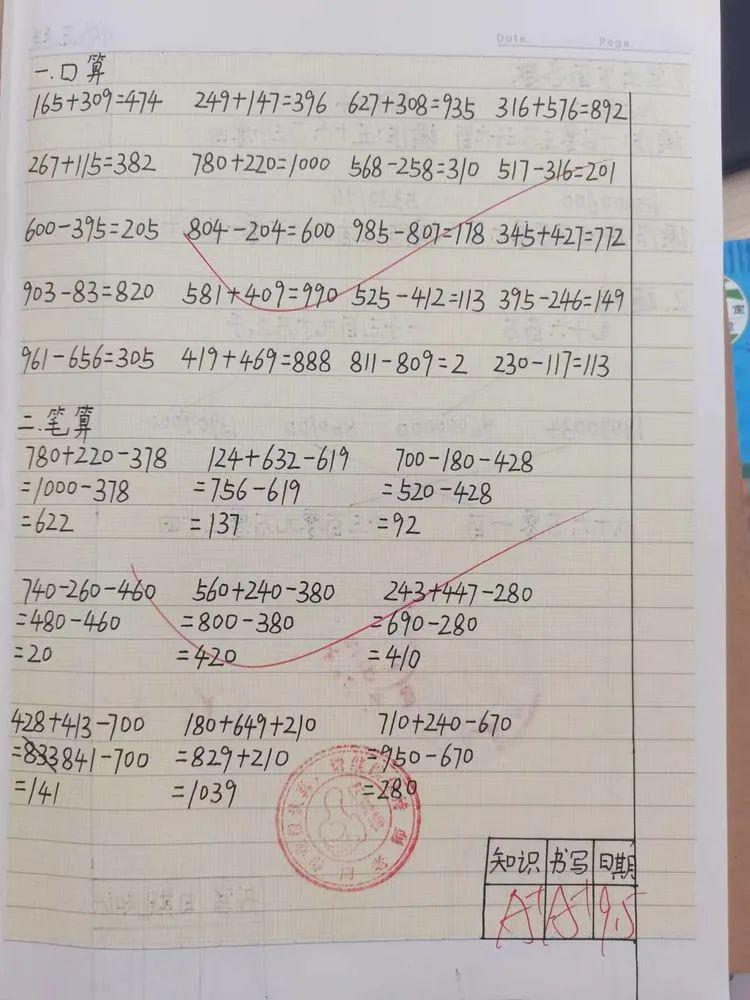 Date. Page.
一.口算
165+309=474 249+147=396 627+308=935 316+576=892
267+115=382 780+220=1000 568-258=310 517-316=201
600-395=205 804-204=600 985-807=178 345+427=772
903-83=820 581+409=990 525-412=113 395-246=149
961-656=305 419+469=888 811-809=2 230-117=113
二.笔算
780+220-378 124+632-619 700-180-428
=1000-378 =756-619 =520-428
=622 =137 =92
740-260-460 560+240-380 243+447-280
=480-460 =800-380 =690-280
=20 =420 =410
428+413-700 180+649+210 710+240-670
=833841-700 =829+210 =950-670
=141 =1039 =280
知识 书写 日期
A+ A+ 9.5